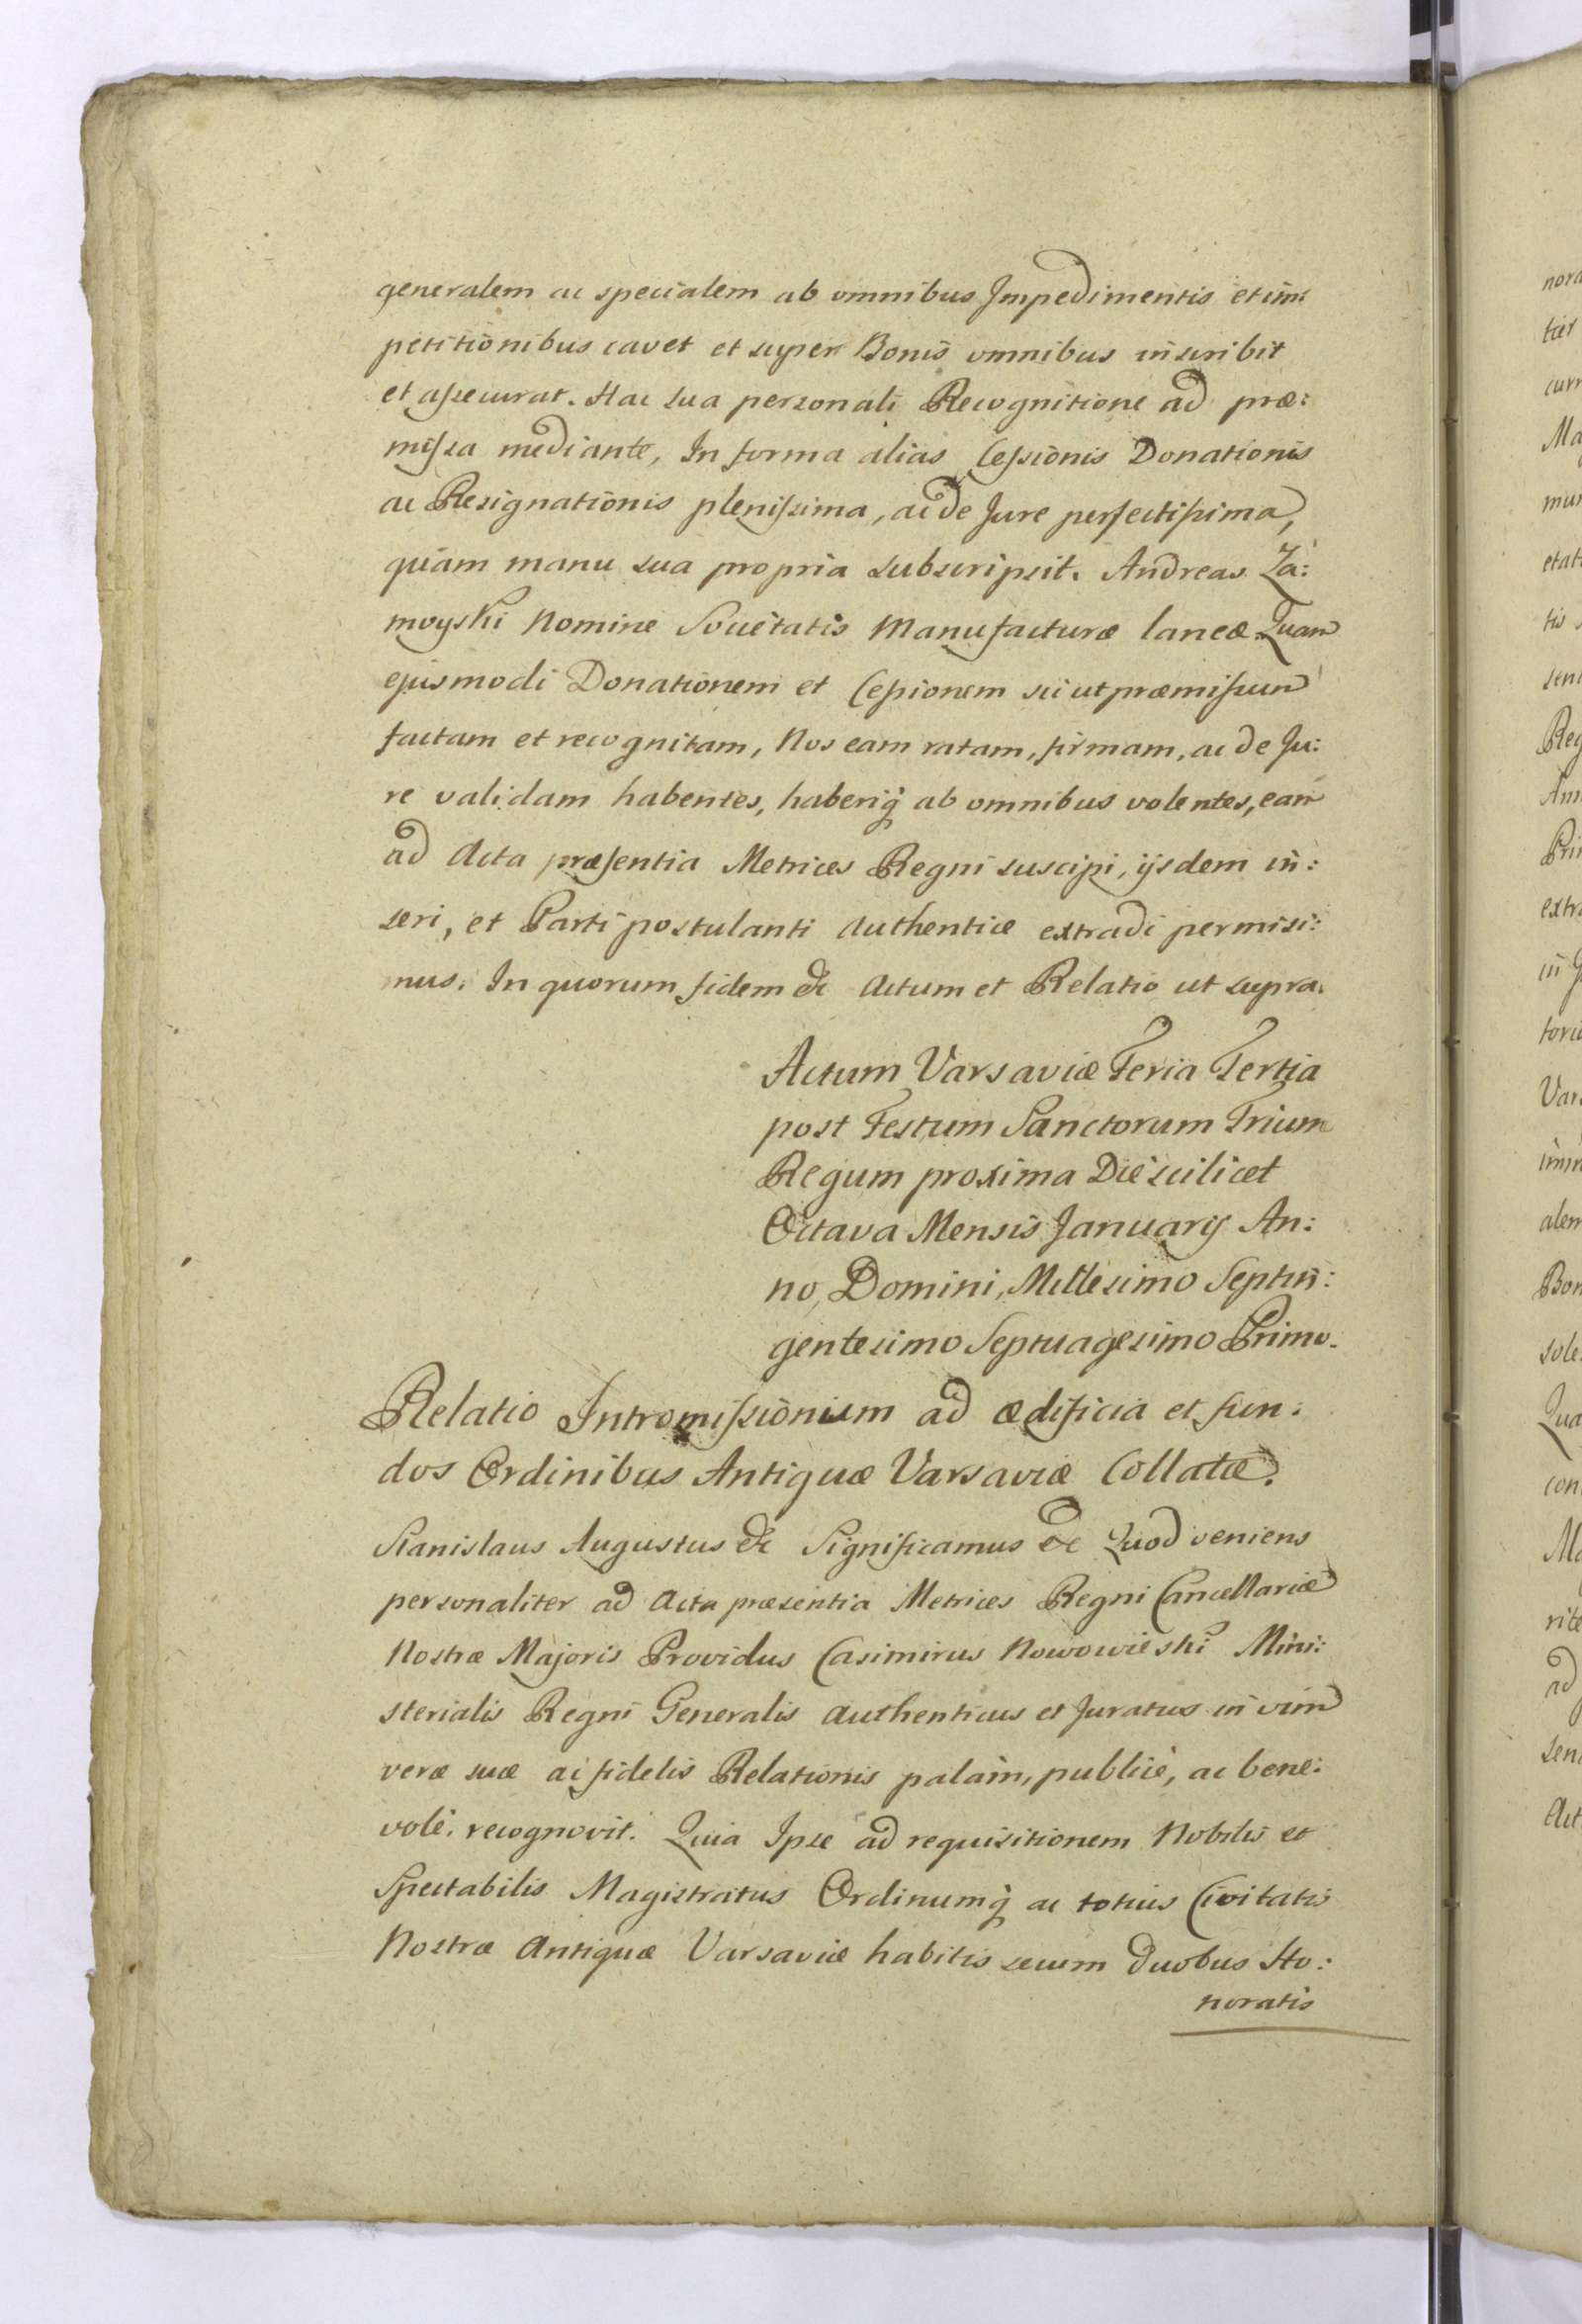 generalem ac specialem ab omnibus Impedimentis et im:
petitionibus cavet et super Bonis omnibus inscribit
et assecurat. Hac sua personali Recognitione ad præ:
missa mediante, In forma alias Cessionis Donationis
ac Resignationis plenissima, ac de Jure perfectissima,
quam manu sua propria subscripsit. Andreas Za:
moyski Nomine Societatis Manufacturæ laneæ. Quam
ejusmodi Donationem et Cessionem sic ut præmissum
factam et recognitam, Nos eam ratam, firmam, ac de Ju:
re validam habentes, haberiq̃ ab omnibus volentes, eam
ad Acta præsentia Metrices Regni suscipi, ijsdem in:
seri, et Parti postulanti Authentice extradi permisi:
mus. In quorum fidem &c Actum et Relatio ut supra.
Actum Varsaviæ Feria Tertia
post Festum Sanctorum Trium
Regum proxima Die scilicet
Octava Mensis Januarij An:
no Domini, Millesimo Septin:
gentesimo Septuagesimo Primo.
Relatio Intromissionum ad ædificia et fun:
dos Ordinibus Antiquæ Varsaviæ Collatæ.
Stanislaus Augustus &c Significamus &c Quod veniens
personaliter ad Acta præsentia Metrices Regni Cancellariæ
Nostræ Majoris Providus Casimirus Nowowieski Mini:
sterialis Regni Generalis Authenticus et Juratus in vim
veræ suæ ac fidelis Relationis palàm, publicè, ac bene:
volè. recognovit. Quia Ipse ad requisitionem Nobilis et
Spectabilis Magistratus Ordinumq̃ ac totius Civitatis
Nostræ Antiquæ Varsaviæ habitis secum Duobus Ho:
noratis